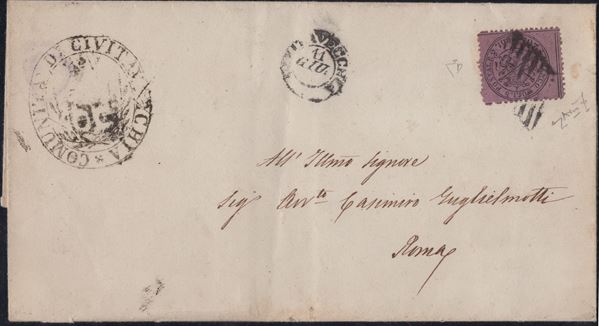 COMUNITA DI CIVITAVECCHIA
CIVITAVECCHIA
11
GIU.
All' Illmo Signore
Sig Avv.to Casimiro Guglielmotti
Roma